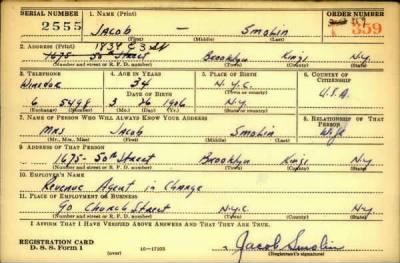 SERIAL NUMBER 1. NAME (Print) ORDER NUMBER
2555 JACOB — SMOLIN 359
(First) (Middle) (Last)
2. ADDRESS (Print) 1839 E 3 St
1675- 50th STREET BROOKLYN KINGS N.Y.
(Number and street or R. F. D. number) (Town) (County) (State)
3. TELEPHONE 4. AGE IN YEARS 5. PLACE OF BIRTH 6. COUNTRY OF CITIZENSHIP
WINDSOR 34 N.Y.C.
DATE OF BIRTH (Town or county) U.S.A.
6 5498 3 26 1906 N.Y.
(Exchange) (Number) (Mo.) (Day) (Yr.) (State or country)
7. NAME OF PERSON WHO WILL ALWAYS KNOW YOUR ADDRESS 8. RELATIONSHIP OF THAT PERSON
MRS JACOB SMOLIN WIFE
(Mr., Mrs., Miss) (First) (Middle) (Last)
9. ADDRESS OF THAT PERSON
1675- 50th STREET BROOKLYN KINGS N.Y.
(Number and street or R. F. D. number) (Town) (County) (State)
10. EMPLOYER'S NAME
REVENUE AGENT IN CHARGE
11. PLACE OF EMPLOYMENT OR BUSINESS
90 CHURCH STREET N.Y.C. N.Y.
(Number and street or R. F. D. number) (Town) (County) (State)
I AFFIRM THAT I HAVE VERIFIED ABOVE ANSWERS AND THAT THEY ARE TRUE.
REGISTRATION CARD
D. S. S. Form 1 (over) 16—17105 Jacob Smolin
(Registrant's signature)